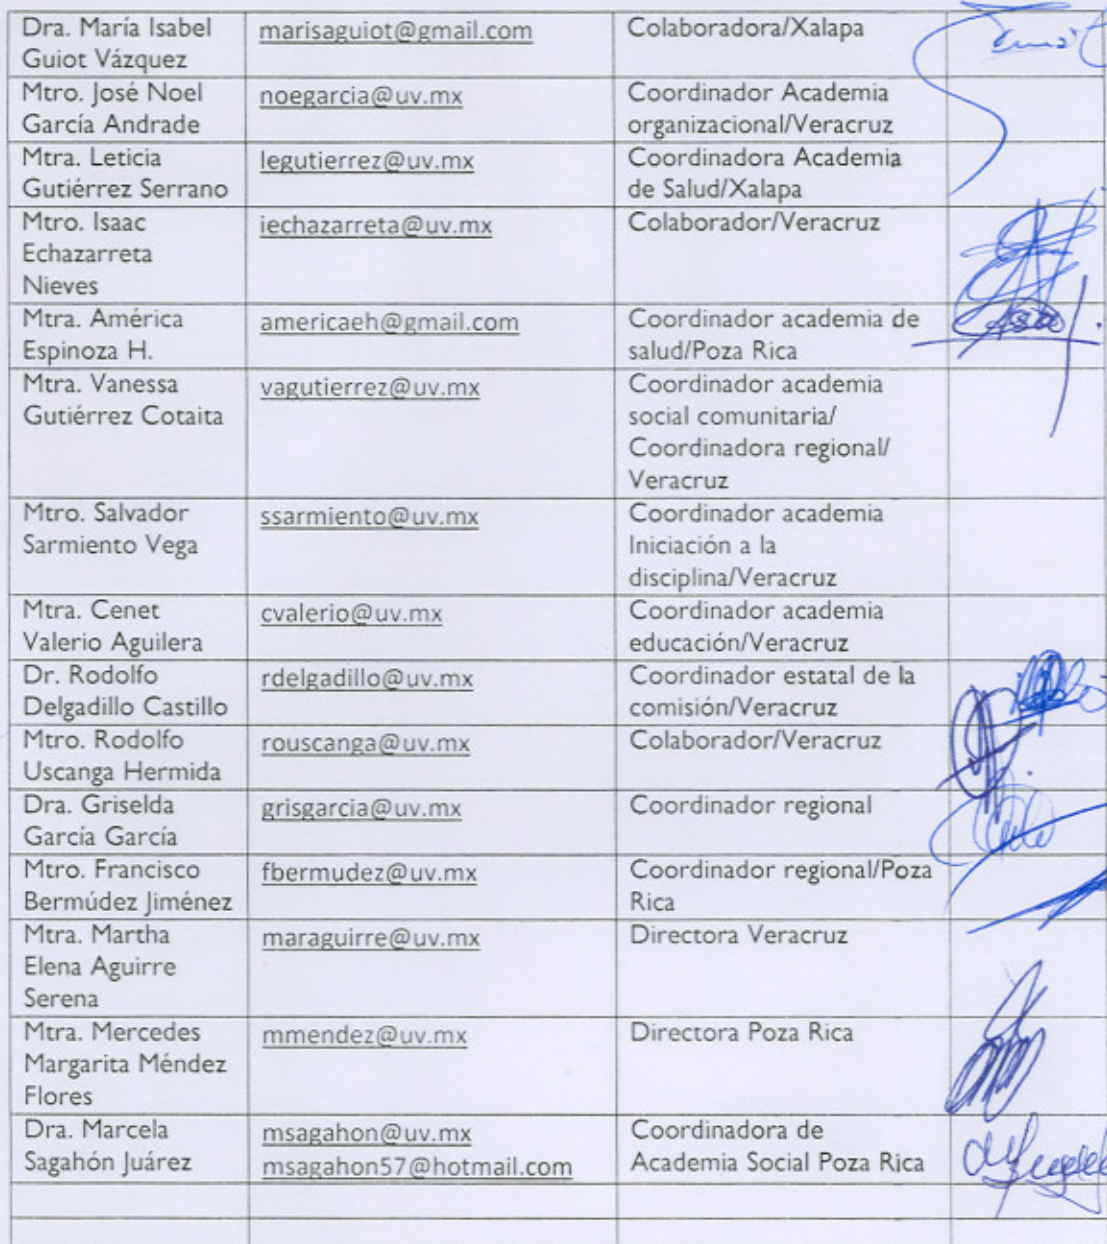 Dra. María Isabel
Guiot Vázquez
marisaguiot@gmail.com
Colaboradora/Xalapa
Mtro. José Noel
García Andrade
noegarcia@uv.mx
Coordinador Academia
organizacional/Veracruz
Mtra. Leticia
Gutiérrez Serrano
legutierrez@uv.mx
Coordinadora Academia
de Salud/Xalapa
Mtro. Isaac
Echazarreta
Nieves
iechazarreta@uv.mx
Colaborador/Veracruz
Mtra. América
Espinoza H.
americaeh@gmail.com
Coordinador academia de
salud/Poza Rica
Mtra. Vanessa
Gutiérrez Cotaita
vagutierrez@uv.mx
Coordinador academia
social comunitaria/
Coordinadora regional/
Veracruz
Mtro. Salvador
Sarmiento Vega
ssarmiento@uv.mx
Coordinador academia
Iniciación a la
disciplina/Veracruz
Mtra. Cenet
Valerio Aguilera
cvalerio@uv.mx
Coordinador academia
educación/Veracruz
Dr. Rodolfo
Delgadillo Castillo
rdelgadillo@uv.mx
Coordinador estatal de la
comisión/Veracruz
Mtro. Rodolfo
Uscanga Hermida
rouscanga@uv.mx
Colaborador/Veracruz
Dra. Griselda
García García
grisgarcia@uv.mx
Coordinador regional
Mtro. Francisco
Bermúdez Jiménez
fbermudez@uv.mx
Coordinador regional/Poza
Rica
Mtra. Martha
Elena Aguirre
Serena
maraguirre@uv.mx
Directora Veracruz
Mtra. Mercedes
Margarita Méndez
Flores
mmendez@uv.mx
Directora Poza Rica
Dra. Marcela
Sagahón Juárez
msagahon@uv.mx
msagahon57@hotmail.com
Coordinadora de
Academia Social Poza Rica